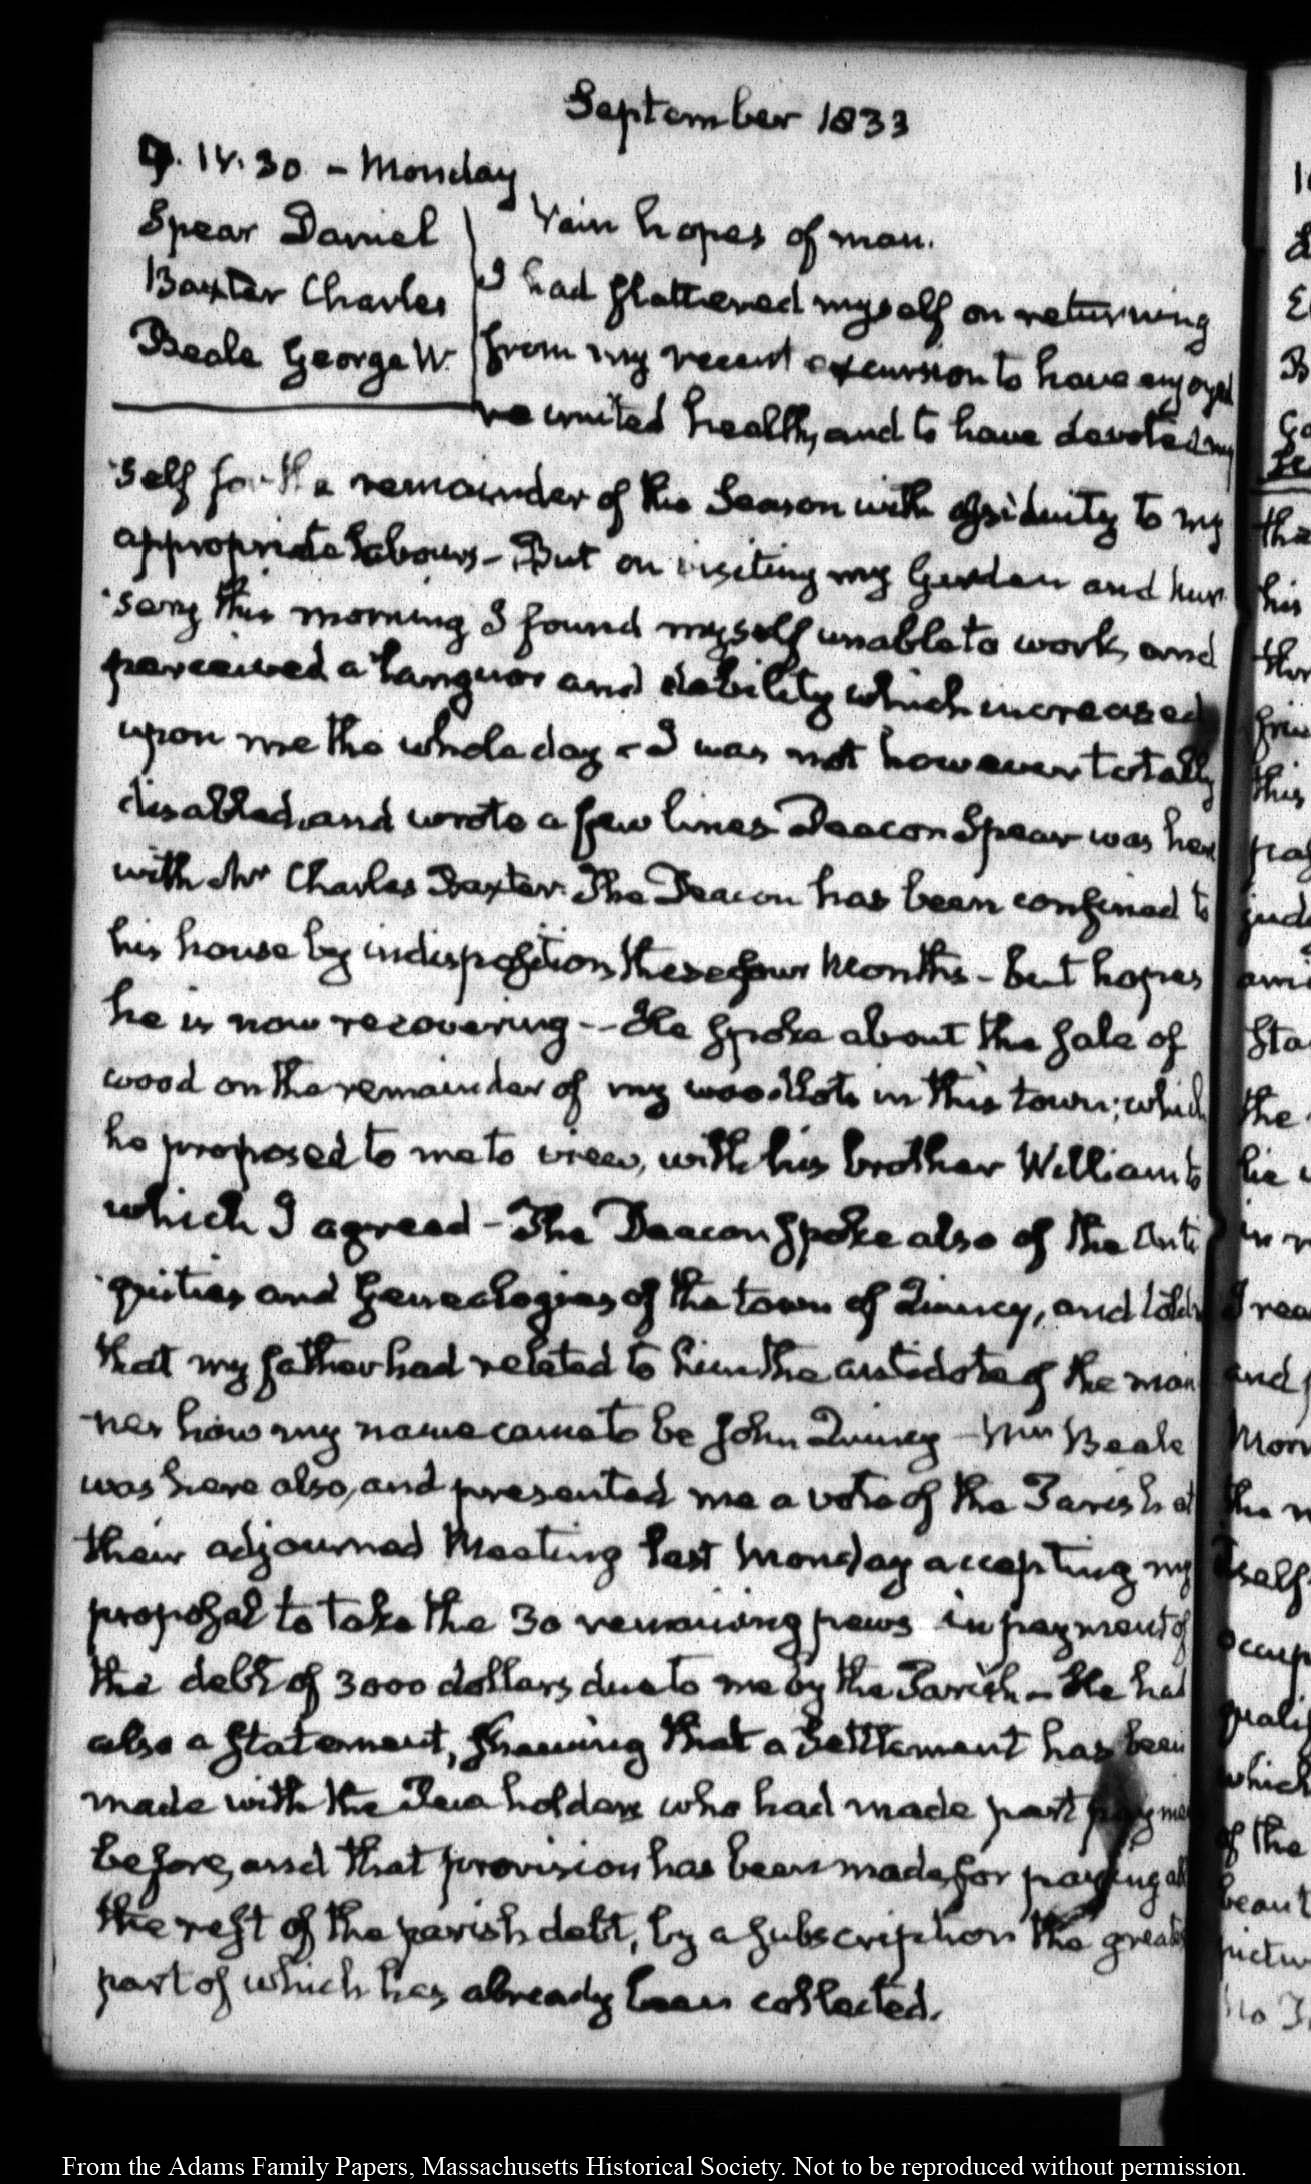 September 1833
9. IV. 30 – Monday
Spear Daniel
Baxter Charles
Beale George W.
Vain hopes of man.
I had flattered myself on returning
from my recent excursion to have enjoyed
reunited health, and to have devoted my
self for the remainder of the Season with assiduity to my
appropriate labours – But on visiting my Garden and Nur
sery this morning I found myself unable to work, and
perceived a languor and debility which increased
upon me the whole day – I was not however totally
disabled, and wrote a few lines Deacon Spear was here
with Mr Charles Baxter. The Deacon has been confined to
his house by indisposition these four Months – but hopes
he is now recovering – He spoke about the sale of
wood on the remainder of my woodlots in this town; which
he proposed to me to view, with his brother William to
which I agreed – The Deacon spoke also of the Anti
quities and Genealogies of the town of Quincy, and told
that my father had related to him the antidote of the man
ner how my name came to be John Quincy – Mr Beale
was here also, and presented me a vote of the Parish at
their adjourned Meeting last Monday accepting my
proposal to take the 30 remaining pews in payment of
the debt of 3000 dollars due to me by the Parish – He had
also a statement, shewing that a Settlement has been
made with the Pew holders who had made part payme
before, and that provision has been made for paying all
the rest of the parish debt, by a subscription the greater
part of which has already been collected.
From the Adams Family Papers, Massachusetts Historical Society. Not to be reproduced without permission.